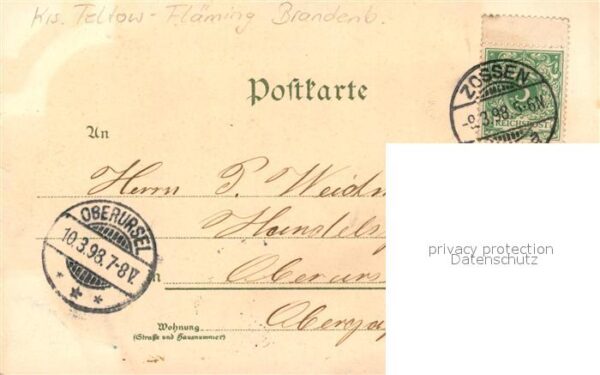 Krs. Teltow-Fläming Brandenb.
Postkarte
ZOSSEN
-9.3.98. 5-6V.
a
5
REICHSPOST
An
Herrn P. Weidm
Handels
in Oberurs
Oberga
OBERURSEL
10.3.98.7-8V.
* * *
Wohnung
(Straße und Hausnummer)
privacy protection
Datenschutz